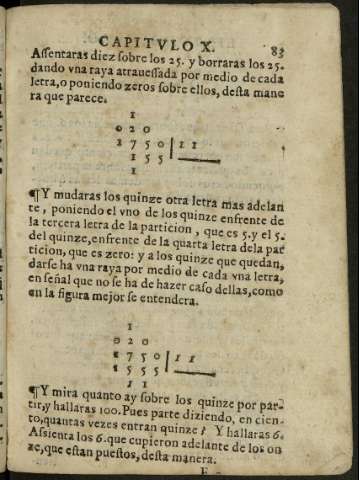 CAPITVLO X. 83
Assentaras diez sobre los 25. y borraras los 25.
dando vna raya atrauessada por medio de cada
letra, o poniendo zeros sobre ellos, desta mane
ra que parece.
1
0 2 0
1 7 5 0 | 1 1
1 5 5
1
¶Y mudaras los quinze otra letra mas adelan
te, poniendo el vno de los quinze enfrente de
la tercera letra de la particion, que es 5. y el 5.
del quinze, enfrente de la quarta letra dela par
ticion, que es zero: y a los quinze que quedan,
darse ha vna raya por medio de cada vna letra,
en señal que no se ha de hazer caso dellas, como
en la figura mejor se entendera.
1
0 2 0
1 7 5 0 | 1 1
1 5 5 5
1 1
¶Y mira quanto ay sobre los quinze por par-
tir, y hallaras 100. Pues parte diziendo, en cien-
to, quantas vezes entran quinze? Y hallaras 6.
Assienta los 6. que cupieron adelante de los on
ze, que estan puestos, desta manera.